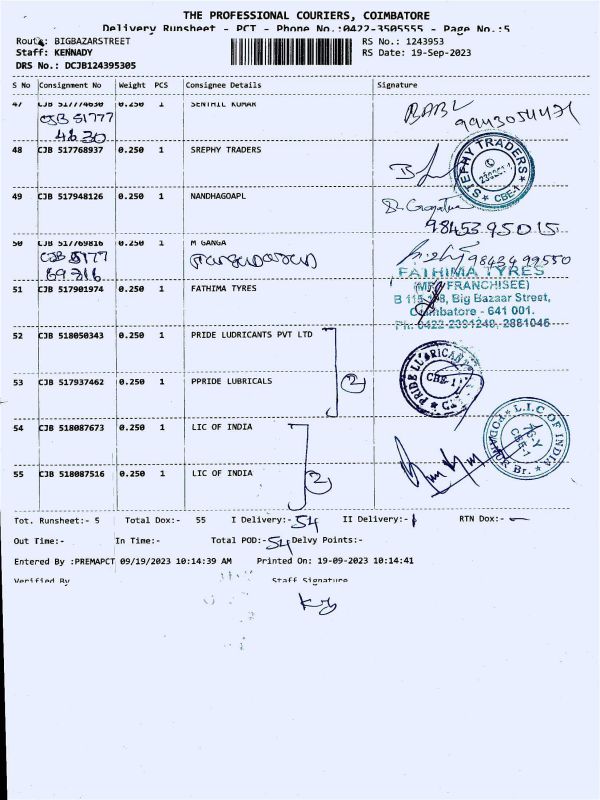 THE PROFESSIONAL COURIERS, COIMBATORE
Delivery Runsheet - PCT - Phone No.:0422-3505555 - Page No.:5
Route: BIGBAZARSTREET
Staff: KENNADY
DRS No.: DCJB124395305
RS No.: 1243953
RS Date: 19-Sep-2023
S No Consignment No Weight PCS Consignee Details Signature
47 CJB 517774630 0.250 1 SENTHIL KUMAR
CJB 51777
4630
BABU
9943054471
48 CJB 517768937 0.250 1 SREPHY TRADERS
STEPHY TRADERS
CBE-1
49 CJB 517948126 0.250 1 NANDHAGOAPL
9845395015
50 CJB 517769816 0.250 1 M GANGA
CJB 5177
69816
9843499550
51 CJB 517901974 0.250 1 FATHIMA TYRES
FATHIMA TYRES
(MRF FRANCHISEE)
Big Bazaar Street,
Coimbatore - 641 001.
Ph: 0422-2391240, 2881046
52 CJB 518050343 0.250 1 PRIDE LUDRICANTS PVT LTD
53 CJB 517937462 0.250 1 PPRIDE LUBRICALS
2
PRIDE LUBRICANT
CBE-1
54 CJB 518087673 0.250 1 LIC OF INDIA
55 CJB 518087516 0.250 1 LIC OF INDIA
2
L.I.C OF INDIA
CBE-1
Br.
Tot. Runsheet:- 5 Total Dox:- 55 I Delivery:- 54 II Delivery:- 1 RTN Dox:- -
Out Time:- In Time:- Total POD:- 54 Delvy Points:-
Entered By :PREMAPCT 09/19/2023 10:14:39 AM Printed On: 19-09-2023 10:14:41
Verified By Staff Signature